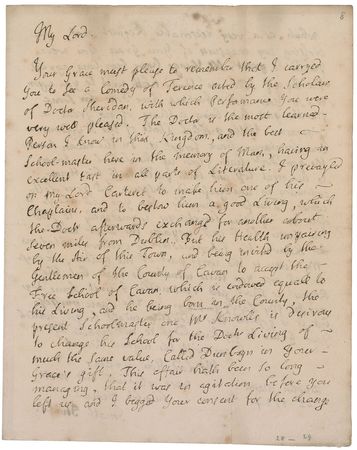 8
My Lord.
Your Grace must please to remember that I carryed
You to see a Comedy of Terence acted by the Scholars
of Doctr Sheridan, with which Performance You were
very well pleased. The Doctr is the most learned
Person I know in this Kingdom, and the best
School-master here in the memory of Man, having an
excellent Tast in all parts of Literature. I prevayled
on my Lord Carteret to make him one of his
Chaplains, and to bestow him a good Living, which
the Doctr afterwards exchangd for another about
seven miles from Dublin. But his Health impairing
by the Air of this Town, and being invited by the
Gentlemen of the County of Cavan to accept the
Free School of Cavan, which is endowed equall to
his Living, and he being born in the County, the
present Schoolmaster one Mr Knowles is desirous
to change his School for the Doctrs Living of
much the same value, called Dunboyn in Your
Grace's gift. This affair hath been so long
managing, that it was in agitation before you
left us and I begged Your consent for the change
28 – 29